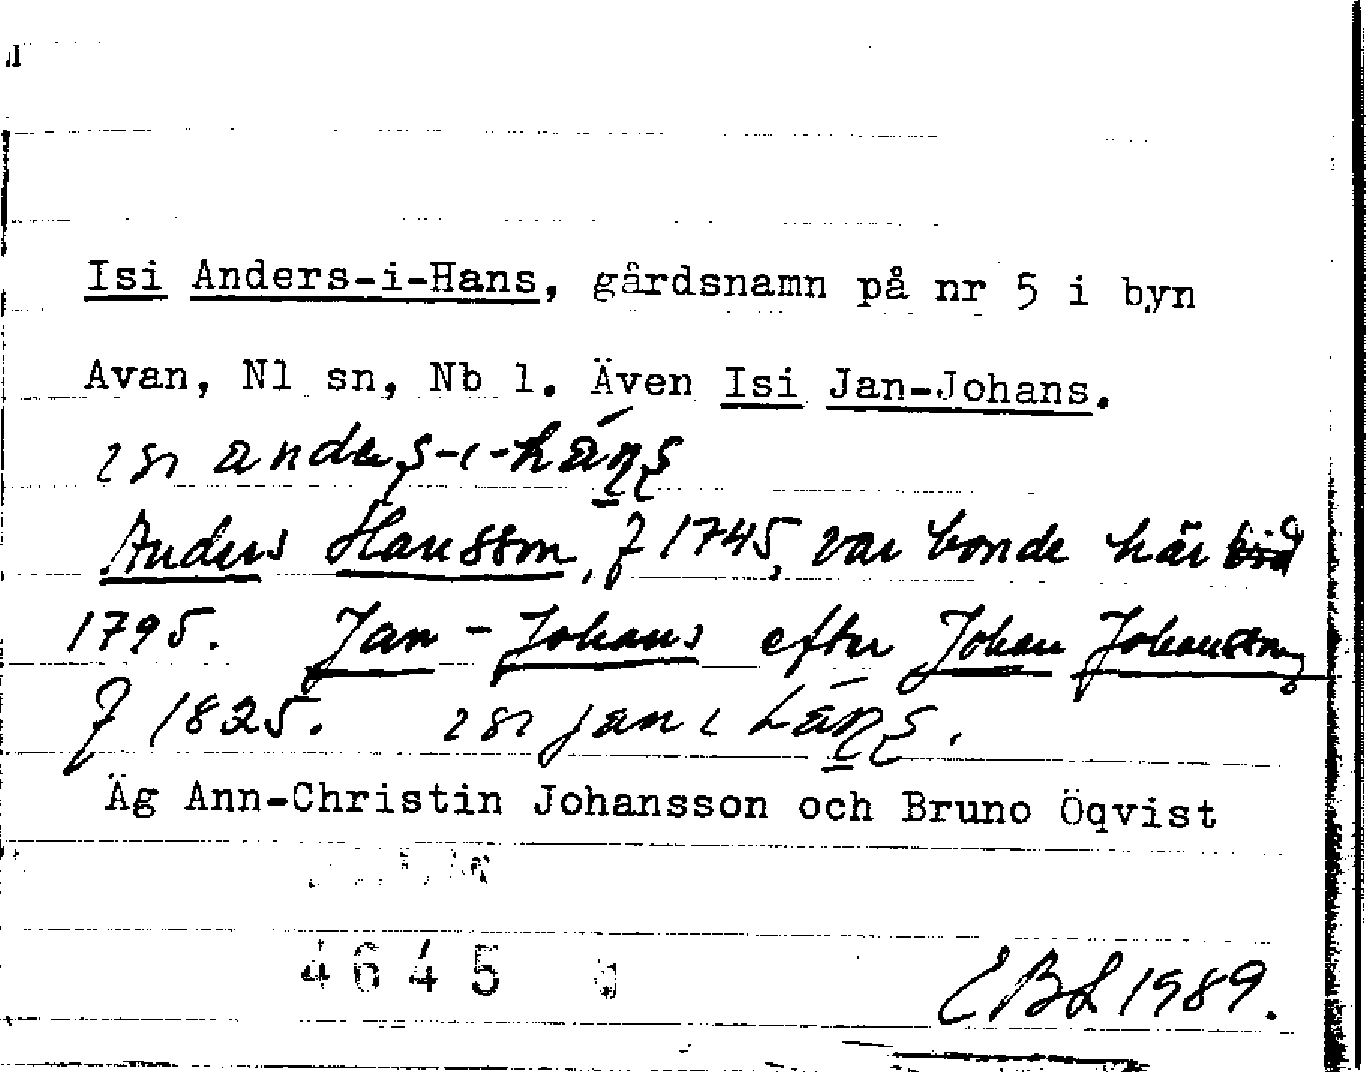 Isi Anders-i-Hans, gårdsnamn på nr 5 i byn
Avan, Nl sn, Nb l. Även Isi Jan-Johans.
ɩsɩ anders-ɩ-háns
Anders Hansson, f 1745, var bonde här
1795. Jan-Johans efter Johan Johansson,
f 1825. ɩsɩ jan ɩ háns.
Äg Ann-Christin Johansson och Bruno Öqvist
4645
EBL 1989.